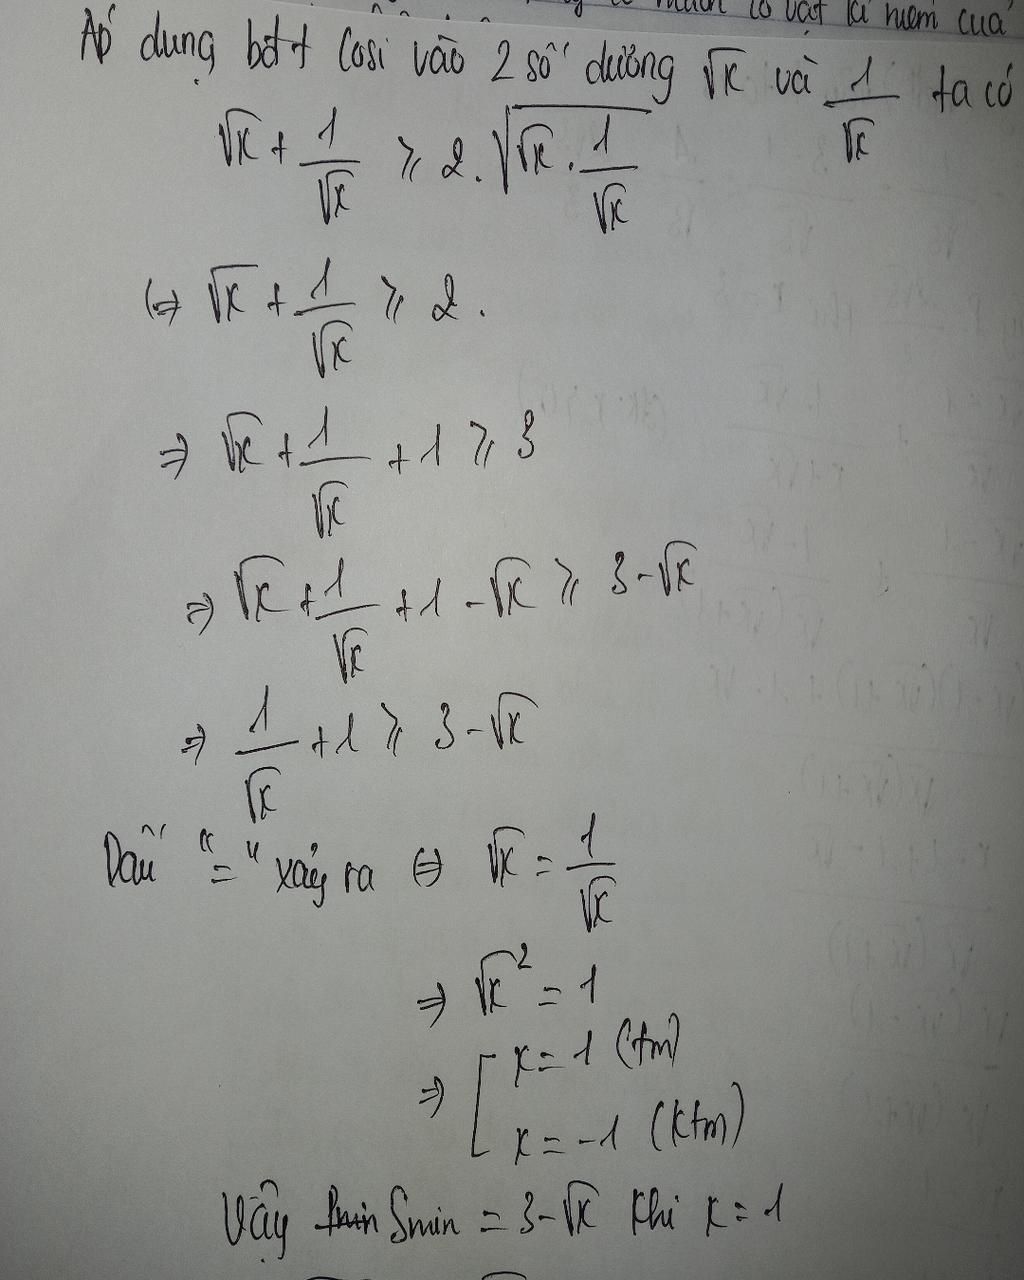 Áp dụng bđt Cosi vào 2 số dương √x và 1/√x ta có
√x + 1/√x ≥ 2.√(√x . 1/√x)
(=> √x + 1/√x ≥ 2.
=> √x + 1/√x + 1 ≥ 3
=> √x + 1/√x + 1 - √x ≥ 3 - √x
=> 1/√x + 1 ≥ 3 - √x
Dấu "=" xảy ra (=) √x = 1/√x
=> √x² = 1
=> [ x = 1 (tm)
x = -1 (ktm)
Vậy Smin = 3 - √x khi x = 1